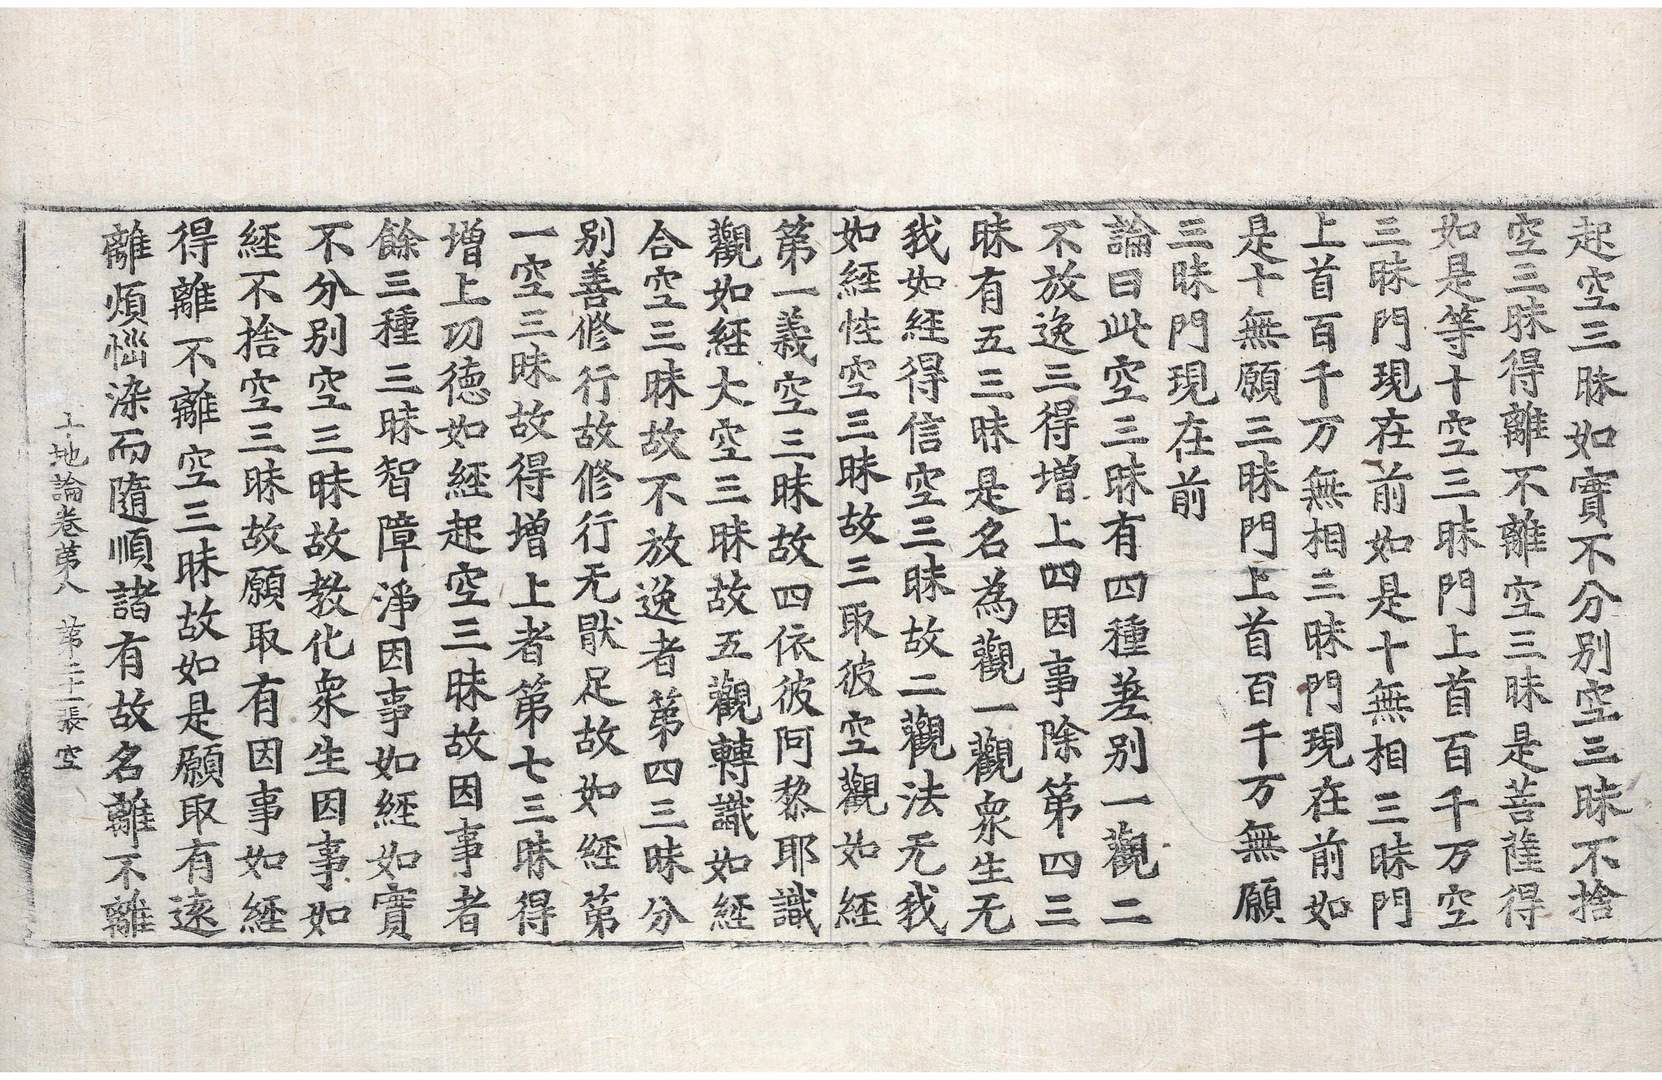 起空三昧如實不分別空三昧不捨
空三昧得離不離空三昧是菩薩得
如是等十空三昧門上首百千万空
三昧門現在前如是十無相三昧門
上首百千万無相三昧門現在前如
是十無願三昧門上首百千万無願
三昧門現在前
論曰此空三昧有四種差別一觀二
不放逸三得增上四因事除第四三
昧有五三昧是名為觀一觀衆生无
我如經得信空三昧故二觀法无我
如經性空三昧故三取彼空觀如經
第一義空三昧故四依彼阿黎耶識
觀如經大空三昧故五觀轉識如經
合空三昧故不放逸者第四三昧分
別善修行故修行无猒足故如經第
一空三昧故得增上者第七三昧得
增上功德如經起空三昧故因事者
餘三種三昧智障淨因事如經如實
不分別空三昧故教化衆生因事如
經不捨空三昧故願取有因事如經
得離不離空三昧故如是願取有遠
離煩惱染而隨順諸有故名離不離
十地論卷第八 第二十一張 空